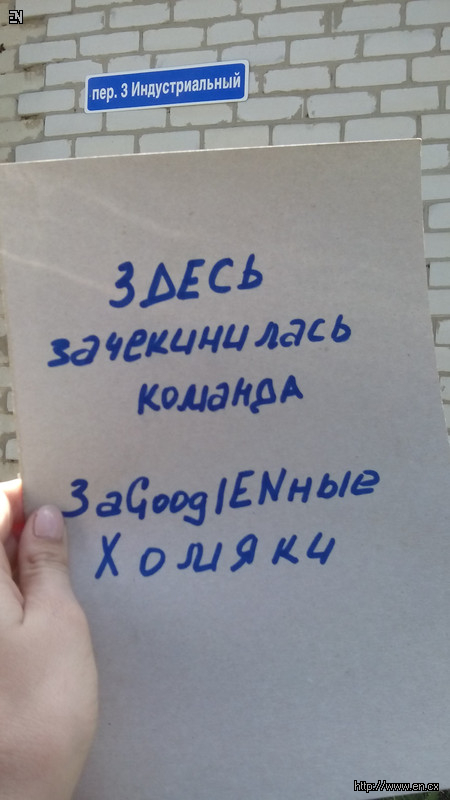 EN
пер. 3 Индустриальный
ЗДЕСЬ
зачекинилась
команда
ЗаGooglENные
Хомяки
http://www.en.cx